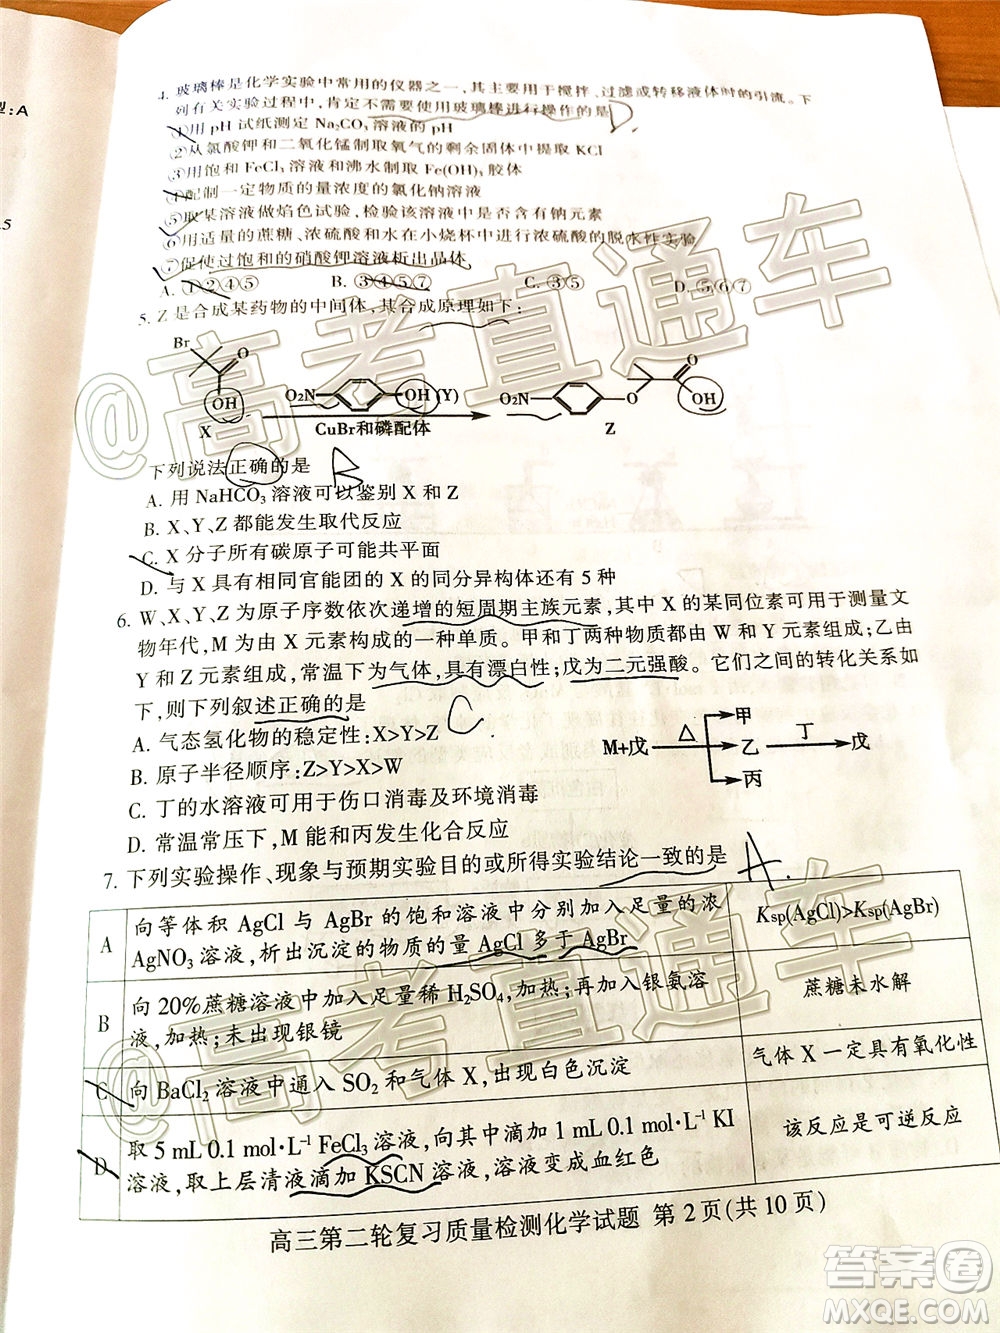 型:A
.5
4. 玻璃棒是化学实验中常用的仪器之一,其主要用于搅拌、过滤或转移液体时的引流。下
列有关实验过程中,肯定不需要使用玻璃棒进行操作的是 D.
①用 pH 试纸测定 Na₂CO₃ 溶液的 pH
②从氯酸钾和二氧化锰制取氧气的剩余固体中提取 KCl
③用饱和 FeCl₃ 溶液和沸水制取 Fe(OH)₃ 胶体
④配制一定物质的量浓度的氯化钠溶液
⑤取某溶液做焰色试验,检验该溶液中是否含有钠元素
⑥用适量的蔗糖、浓硫酸和水在小烧杯中进行浓硫酸的脱水性实验
⑦促使过饱和的硝酸钾溶液析出晶体
A. ①②④⑤ B. ③④⑤⑦ C. ③⑤ D. ⑤⑥⑦
5. Z 是合成某药物的中间体,其合成原理如下:
Br O OH X
O₂N OH (Y)
CuBr和磷配体
O₂N O O OH Z
下列说法正确的是 B
A. 用 NaHCO₃ 溶液可以鉴别 X 和 Z
B. X、Y、Z 都能发生取代反应
C. X 分子所有碳原子可能共平面
D. 与 X 具有相同官能团的 X 的同分异构体还有 5 种
6. W、X、Y、Z 为原子序数依次递增的短周期主族元素,其中 X 的某同位素可用于测量文
物年代,M 为由 X 元素构成的一种单质。甲和丁两种物质都由 W 和 Y 元素组成;乙由
Y 和 Z 元素组成,常温下为气体,具有漂白性;戊为二元强酸。它们之间的转化关系如
下,则下列叙述正确的是 C
A. 气态氢化物的稳定性:X>Y>Z
B. 原子半径顺序:Z>Y>X>W
C. 丁的水溶液可用于伤口消毒及环境消毒
D. 常温常压下,M 能和丙发生化合反应
M+戊 △ 甲 乙 丙 丁 戊
7. 下列实验操作、现象与预期实验目的或所得实验结论一致的是 A.
A 向等体积 AgCl 与 AgBr 的饱和溶液中分别加入足量的浓
AgNO₃ 溶液,析出沉淀的物质的量 AgCl 多于 AgBr
Ksp(AgCl)>Ksp(AgBr)
B 向 20%蔗糖溶液中加入足量稀 H₂SO₄,加热;再加入银氨溶
液,加热;未出现银镜
蔗糖未水解
C 向 BaCl₂ 溶液中通入 SO₂ 和气体 X,出现白色沉淀
气体 X 一定具有氧化性
D 取 5 mL 0.1 mol·L⁻¹ FeCl₃ 溶液,向其中滴加 1 mL 0.1 mol·L⁻¹ KI
溶液,取上层清液滴加 KSCN 溶液,溶液变成血红色
该反应是可逆反应
高三第二轮复习质量检测化学试题 第 2 页(共 10 页)
@高考直通车
@高考直通车
答案圈
MXQE.COM